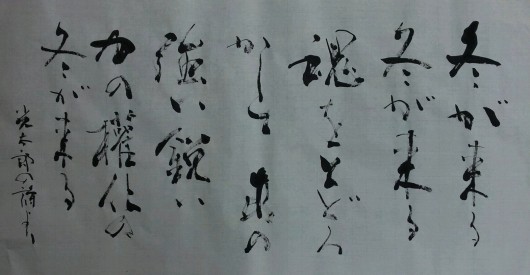 冬が来る
冬が来る
魂をとどろ
かしてあの
強い鋭い
力の権化の
冬が来る
光太郎の詩より